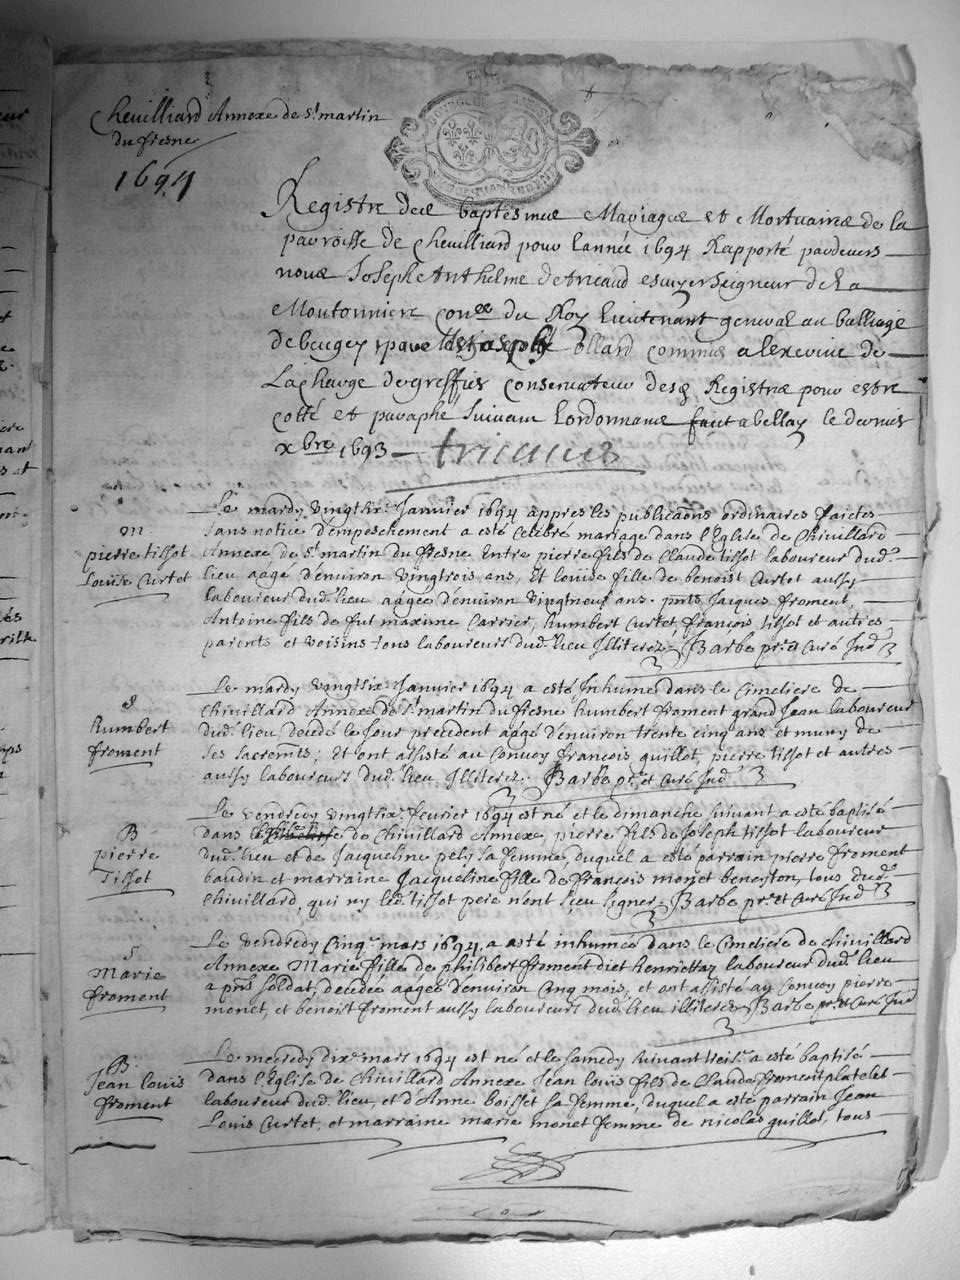 Chevilliard Annexe de St martin
du fresne
1694
Registre des baptesmes Mariages et Mortuaires de la
parroisse de Chevilliard pour lannée 1694 Rapporté pardevers
nous Joseph Anthelme de tricaud escuyer Seigneur de la
Moutonniere coner du Roy lieutenant general au balliage
de beugey par Joseph ollard commis a lexercice de
La charge de greffier conservateur desd Registres pour estre
cotté et paraphé suivant lordonnance fait a bellay le dernier
xbre 1693
tricaud
Le mardy vingtsix Janvier 1694 appres les publicaons ordinaires faictes
sans notice d'empeschement a esté celebré mariage dans l'Eglise de Chivillard
M
pierre tissot
Louise Curtet
Annexe de St martin du fresne Entre pierre fils de Claude tissot laboureur dud.
lieu aagé d'environ vingtrois ans, Et louise fille de benoist Curtet aussy
laboureur dud. lieu aagee d'environ vingtneuf ans. pnts Jacques froment,
Antoine fils de fut maxime Carrier, humbert Curtet francois tissot et autres
parents et voisins tous laboureurs dud. lieu Illiterez. Barbe pr. et Curé Ind
Le mardy vingtsix Janvier 1694 a esté Inhumé dans le Cimetiere de
S
humbert
froment
Chivillard Annexe de St martin du fresne humbert froment grand Jean laboureur
dud. lieu decedé le Jour precedent aagé d'environ trente cinq ans et muny de
ses sacremts; Et ont assisté au Convoy francois guillot, pierre tissot et autres
aussy laboureurs dud. lieu Illiterez. Barbe pr. et Curé Ind
Le vendredy vingtsix fevrier 1694 est né et le dimanche suivant a esté baptisé
B
pierre
Tissot
dans de Chivillard Annexe, pierre fils de Joseph tissot laboureur
dud. lieu et de Jacqueline pely sa femme, duquel a esté parrain pierre froment
baudin et marraine Jacqueline fille de francois monet beneyton, tous dud.
Chivillard, qui ny led. tissot pere n'ont sceu signer. Barbe pr. et Curé Ind
Le vendredy cinq. mars 1694 a esté inhumée dans le Cimetiere de Chivillard
S
Marie
froment
Annexe Marie fille de philibert froment diet henriettaz laboureur dud. lieu
a pnt soldat, decedée aagée d'environ cinq mois, et ont assisté au Convoy pierre
monet, et benoist froment aussy laboureurs dud. lieu illiterez Barbe pr. et Curé Ind
Le mecredy dix. mars 1694 est né et le samedy suivant treis. a esté baptisé
B.
Jean louis
froment
dans l'Eglise de Chivillard Annexe Jean louis fils de Claude froment platelet
laboureur dud. lieu, et d'Anne boisset sa femme, duquel a esté parrain Jean
Louis Curtet, et marraine marie monet femme de nicolas guillot, tous